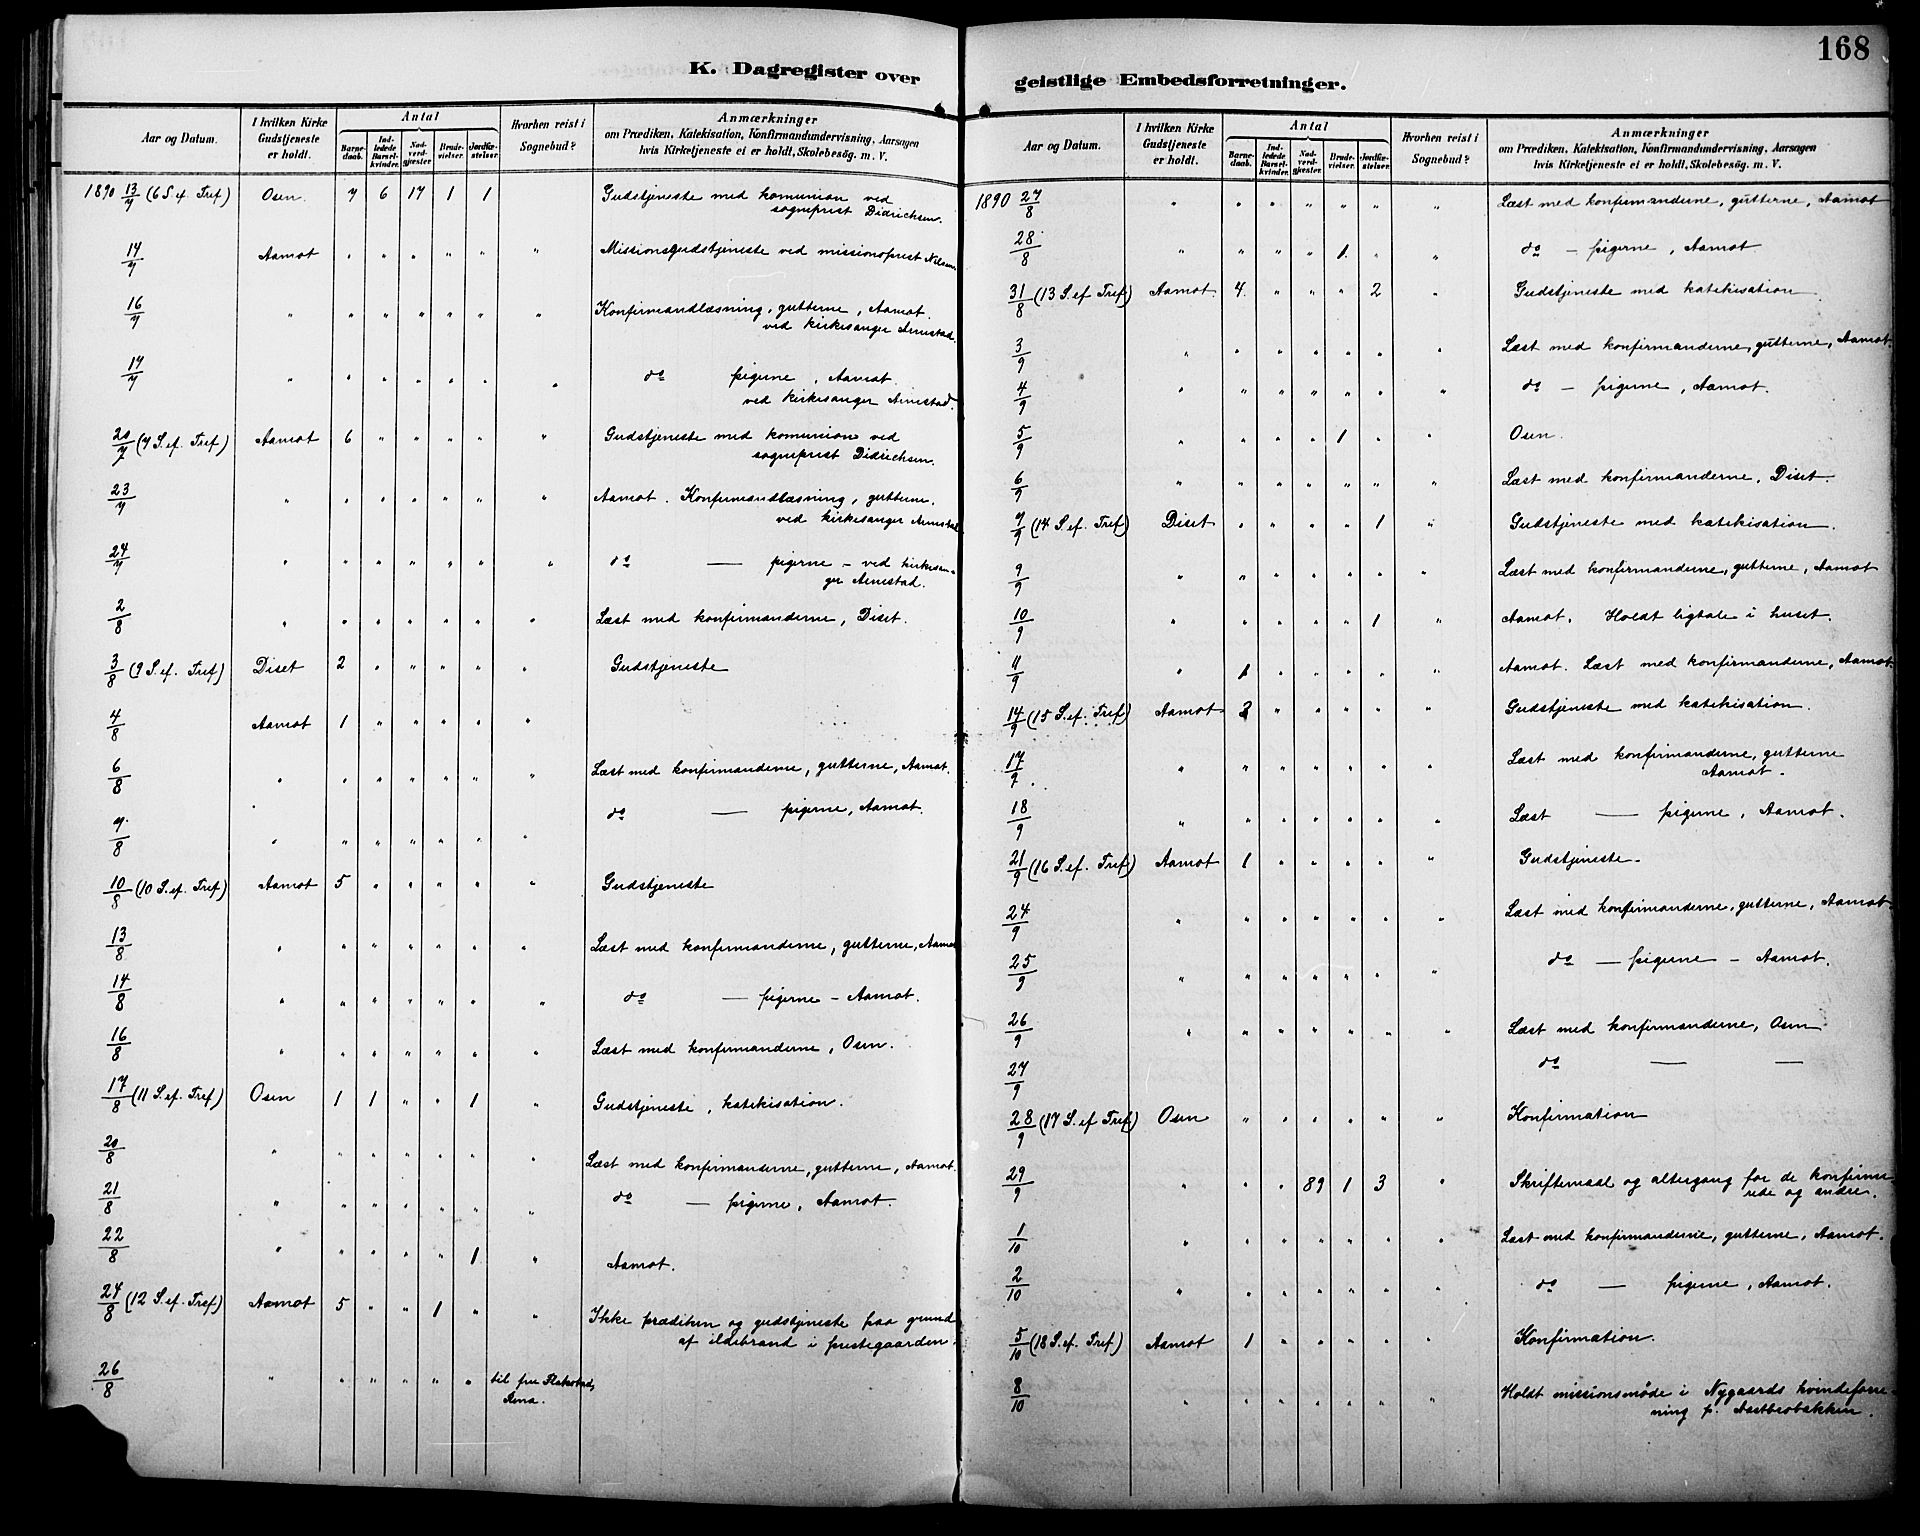 168
K. Dagregister over
Aar og Datum. I hvilken Kirke Gudstjeneste er holdt. Antal Barnedaab. Indledede Barselkvinder. Nadverdgjester Brudevielser. Jordfæstelser. Hvorhen reist i Sognebud? Anmærkninger
om Prædiken, Katekisation, Konfirmandundervisning, Aarsagen
hvis Kirketjeneste ei er holdt, Skolebesög. m. V.
1890 13/7 (6 S. ef. Tref) Osen. 7 6 17 1 1 Gudstjeneste med komunion ved
sogneprest Didrichsen.
14/7 Aamot " " " " " " Missionsgudstjeneste ved missionsprest Nilsen
16/7 " " " " " " " Konfirmandlæsning, gutterne, Aamot.
ved kirkesanger Arnestad.
17/7 " " " " " " " do pigerne, Aamot.
ved kirkesanger Arnestad.
20/7 (7 S. ef. Tref) Aamot 6 " " " " " Gudstjeneste med komunion ved
sogneprest Didrichsen.
23/7 " " " " " " " Aamot. Konfirmandlæsning, gutterne.
ved kirkesanger Arnestad
24/7 " " " " " " " do — pigerne – ved kirkesan-
ger Arnestad.
2/8 " " " " " " " Læst med konfirmanderne, Diset.
3/8 (9 S. ef. Tref) Diset 2 " " " " " Gudstjeneste
4/8 Aamot 1 " " " " "
6/8 " " " " " " " Læst med konfirmanderne, gutterne, Aamot.
7/8 " " " " " " " do — pigerne, Aamot.
10/8 (10 S. ef. Tref) Aamot 5 " " " " " Gudstjeneste
13/8 " " " " " " " Læst med konfirmanderne, gutterne, Aamot
14/8 " " " " " " " do — pigerne – Aamot.
16/8 " " " " " " " Læst med konfirmanderne, Osen.
17/8 (11 S. ef. Tref) Osen 1 1 " " 1 " Gudstjeneste, katekisation.
20/8 " " " " " " " Læst med konfirmanderne, gutterne, Aamot.
21/8 " " " " " " " do — pigerne, Aamot.
22/8 " " " " " 1 " Aamot.
24/8 (12 S. ef. Tref) Aamot 5 " " 1 " " Ikke prædiken og gudstjeneste paa grund
af ildebrand i prestegaarden.
26/8 " " " " " " til fru
Rena.
geistlige Embedsforretninger.
Aar og Datum. I hvilken Kirke Gudstjeneste er holdt. Antal Barnedaab. Indledede Barselkvinder. Nadverdgjester. Brudevielser. Jordfæstelser. Hvorhen reist i Sognebud? Anmærkninger
om Prædiken, Katekisation, Konfirmandundervisning, Aarsagen
hvis Kirketjeneste ei er holdt, Skolebesög. m. V.
1890 27/8 " " " " " " " Læst med konfirmanderne, gutterne, Aamot
28/8 " " " " 1 " " do – pigerne, Aamot.
31/8 (13 S. ef Tref) Aamot. 4 " " " 2 " Gudstjeneste med katekisation.
3/9 " " " " " " " Læst med konfirmanderne, gutterne, Aamot.
4/9 " " " " " " " do – pigerne, Aamot.
5/9 " " " " 1 " " Osen.
6/9 " " " " " " " Læst med konfirmanderne. Diset.
7/9 (14 S. ef. Tref) Diset " " " " 1 " Gudstjeneste med katekisation.
9/9 " " " " " " " Læst med konfirmanderne, gutterne, Aamot
10/9 " " " " " 1 " Aamot. Holdt ligtale i huset.
11/9 " 1 " " " " " Aamot. Læst med konfirmanderne, Aamot.
14/9 (15 S. ef. Tref) Aamot " " " " " Gudstjeneste med katekisation.
17/9 " " " " " " " Læst med konfirmanderne, gutterne
Aamot.
18/9 " " " " " " " Læst — pigerne, Aamot.
21/9 (16 S. ef. Tref) Aamot 1 " " " " " Gudstjeneste.
24/9 " " " " " " " Læst med konfirmanderne, gutterne, Aamot.
25/9 " " " " " " " do — pigerne – Aamot.
26/9 " " " " " " " Læst med konfirmanderne, Osen
27/9 do — —
28/9 (17 S. ef Tref) Osen " " " " " " Konfirmation
29/9 " " " 89 1 3 " Skriftemaal og altergang for de konfirme
rede og andre.
1/10 " " " " " " " Læst med konfirmanderne, gutterne, Aamot.
2/10 " " " " " " " do — pigerne, Aamot.
5/10 (18 S. ef. Tref) Aamot 1 " " " " " Konfirmation.
8/10 " " " " " " " Holdt missionsmöde i Nygaards kvindefore-
ning p.